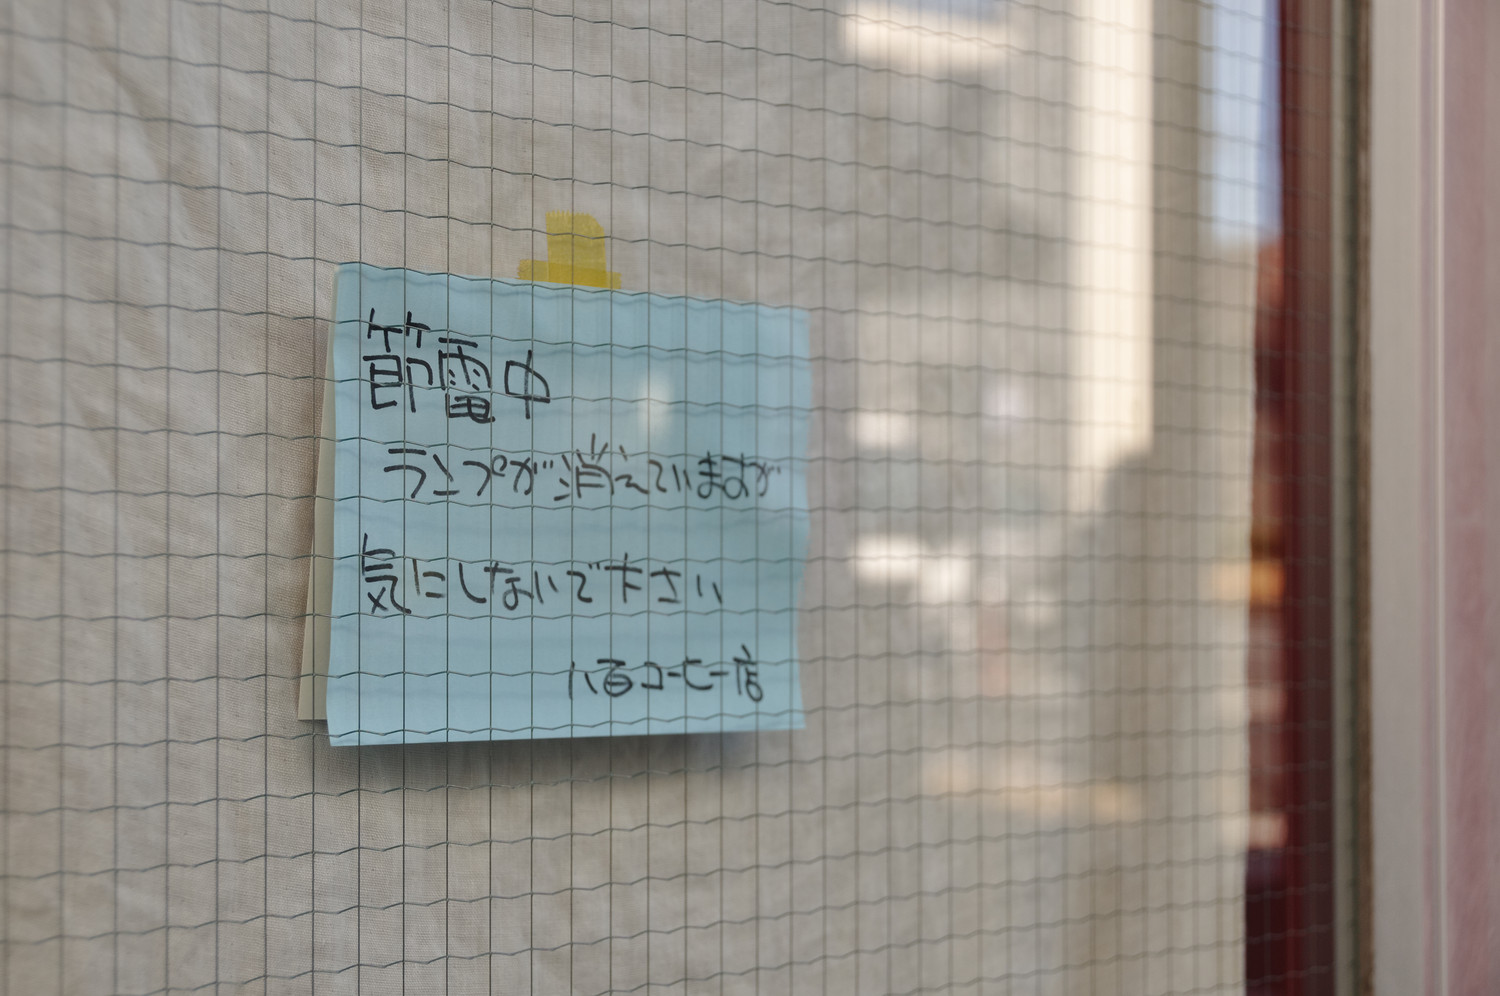 節電中
ランプが消えていますが
気にしないで下さい
八百コーヒー店